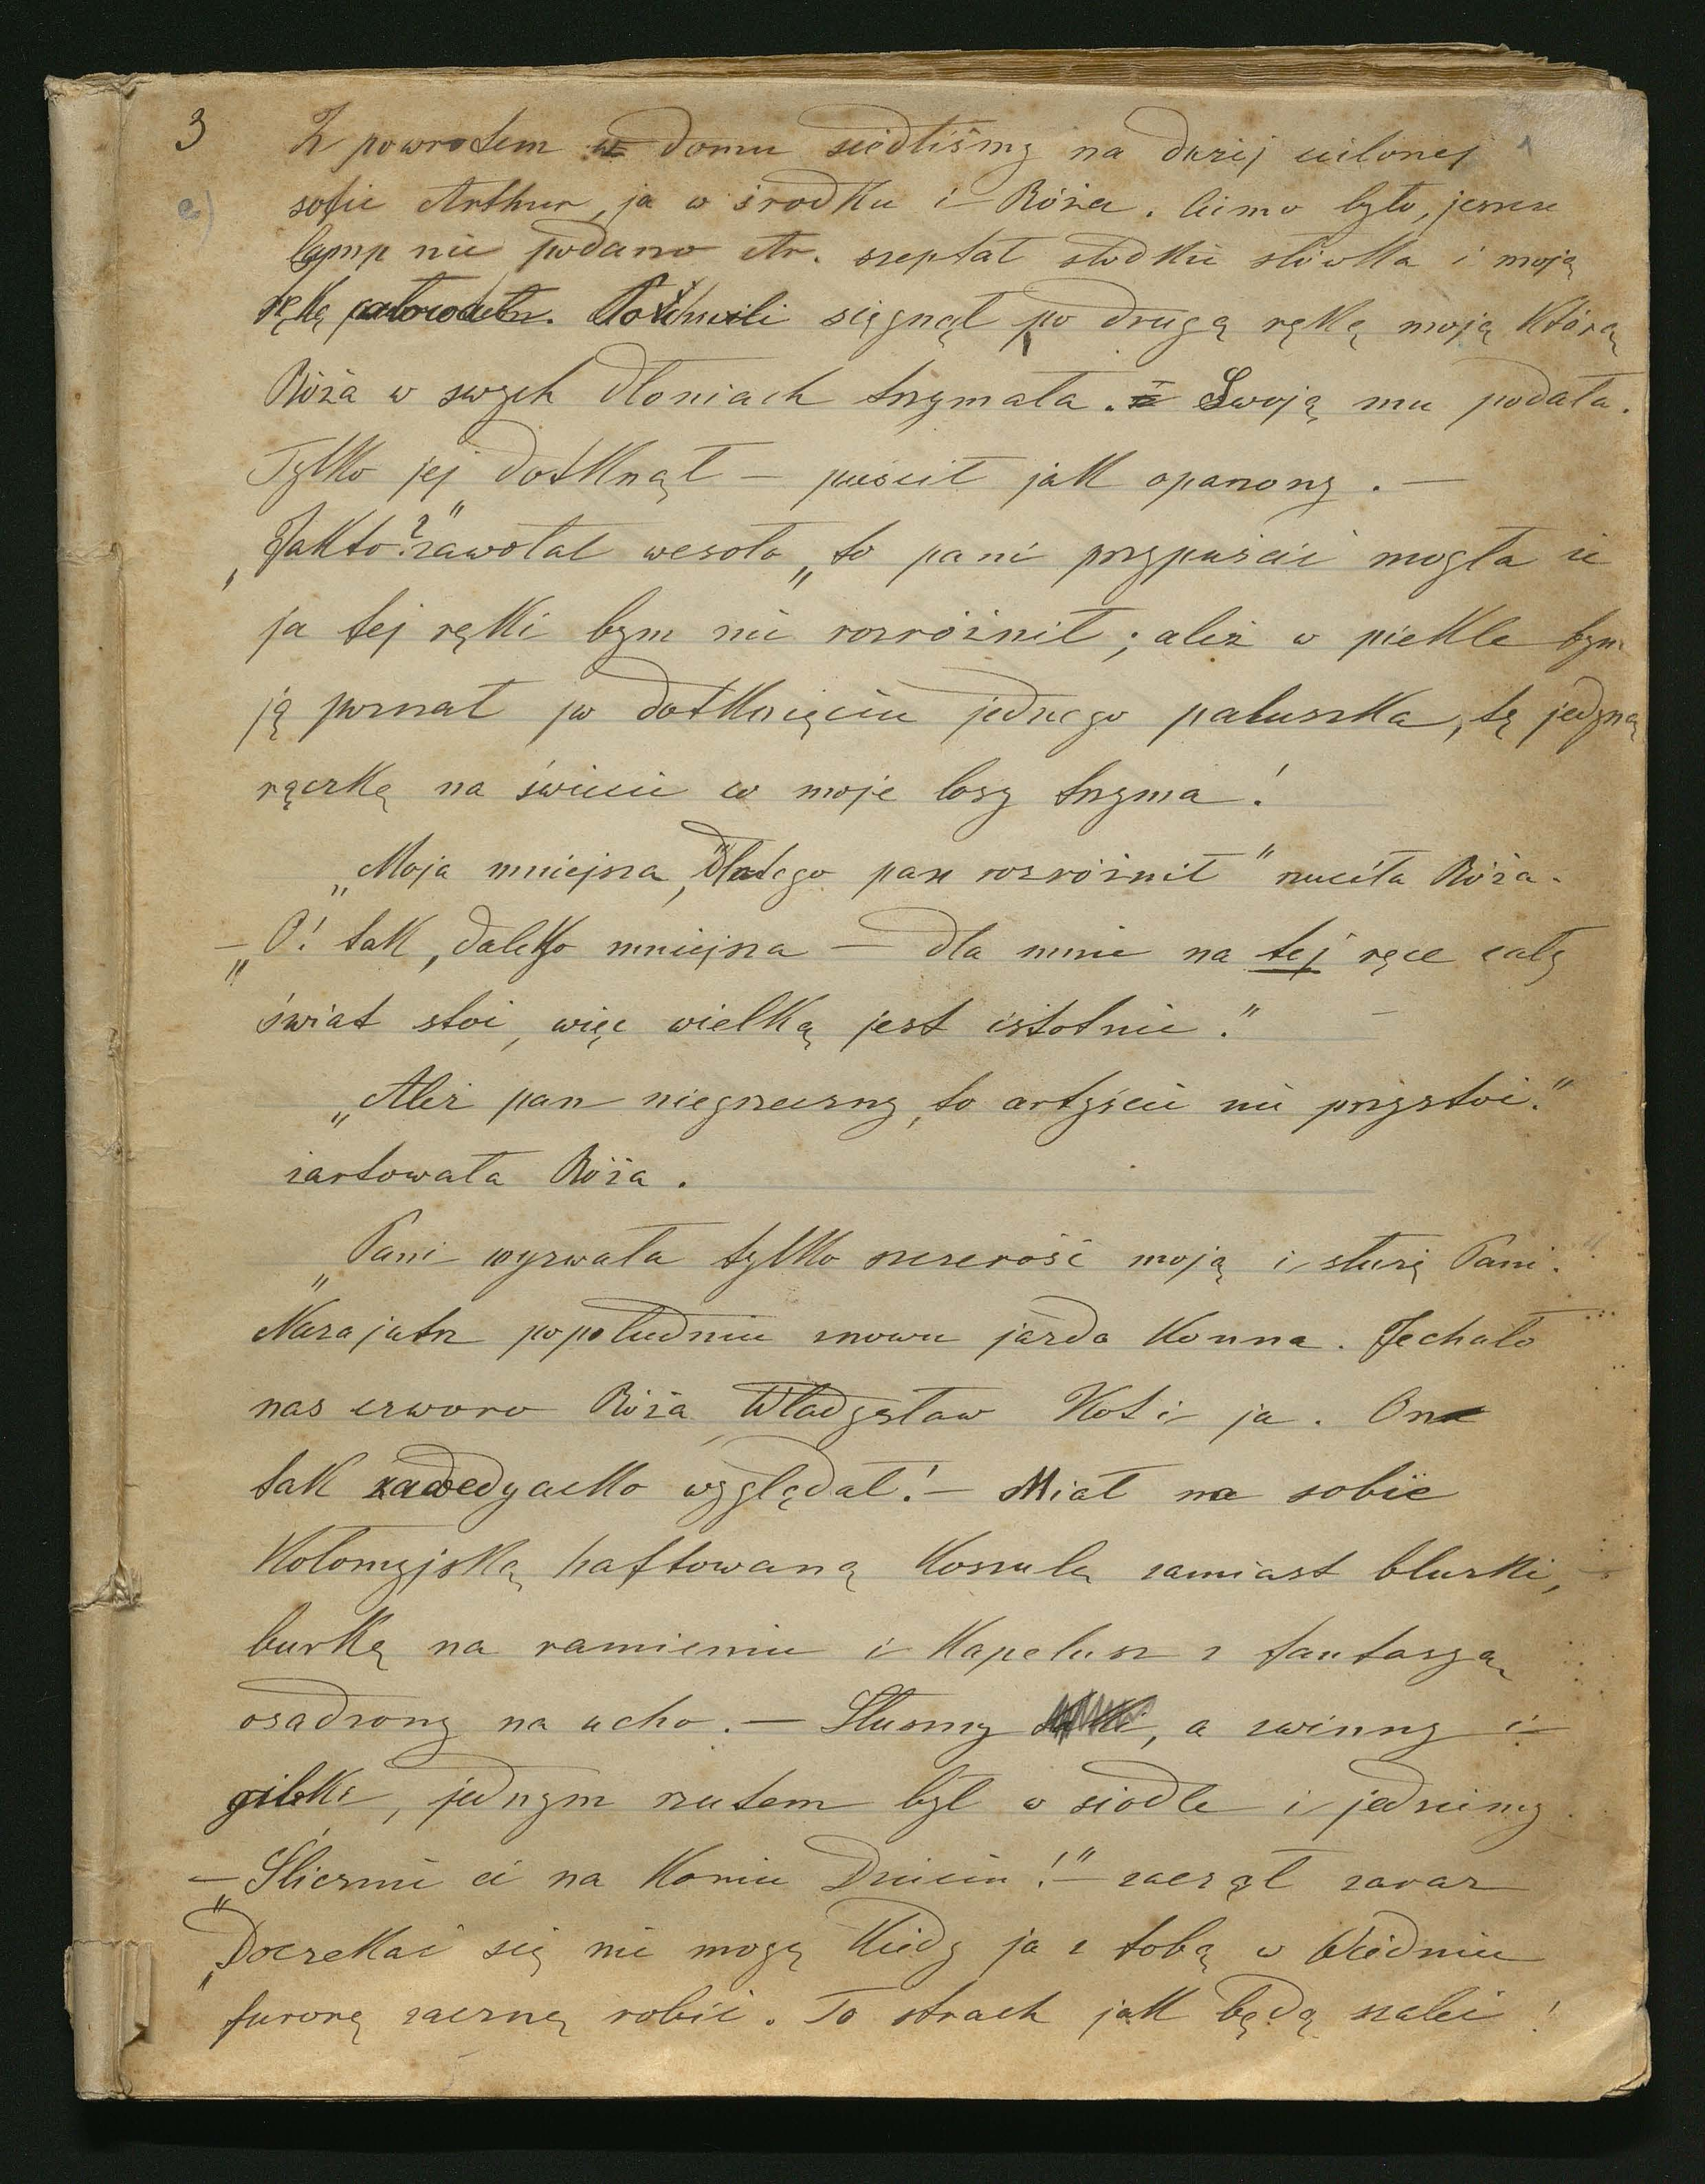 3
Z powrotem w domu siedliśmy na dużej zielonej
sofie Arthur, ja w środku i Róża. Ciemo było, jeszcze
lamp nie podano Ar. szeptał słodkie słówka i moją
rękę całował. Po chwili sięgnął po drugą rękę moją którą
Róża w swych dłoniach trzymała. Swoją mu podała.
Tylko jej dotknął — puścił jak oparzony. —
„Jakto?" zawołał wesoło „to pani przypuścić mogła że
ja tej ręki bym nie rozróżnił; ależ w piekle bym
ją poznał po dotknięciu jednego paluszka, tę jedyną
rączkę na świecie co moje losy trzyma!
„Moja mniejsza, dlatego pan rozróżnił" rzuciła Róża.
— „O! tak, daleko mniejsza — dla mnie na tej ręce cały
świat stoi, więc wielką jest istotnie." —
„Ależ pan niegrzeczny, to artyście nie przystoi."
żartowała Róża.
„Pani wyzwała tylko szczerość moją i służę Pani.
Nazajutrz popołudniu znowu jazda konna. Jechało
nas czworo Róża, Władysław Kot i ja. On
tak zawedyacko wyglądał! — Miał na sobie
Kołomyjską haftowaną koszulę zamiast bluzki,
burkę na ramieniu i kapelusz z fantazyą
osadzony na ucho. — Słuszny, a zwinny i
gibki, jednym rzutem był w siodle i jedziemy.
— „Ślicznie ci na koniu Dziecin!" — zaczął zaraz
„Doczekać się nie mogę kiedy ja z tobą w Wiedniu
furorę zacznę robić. To strach jak będą szaleć!